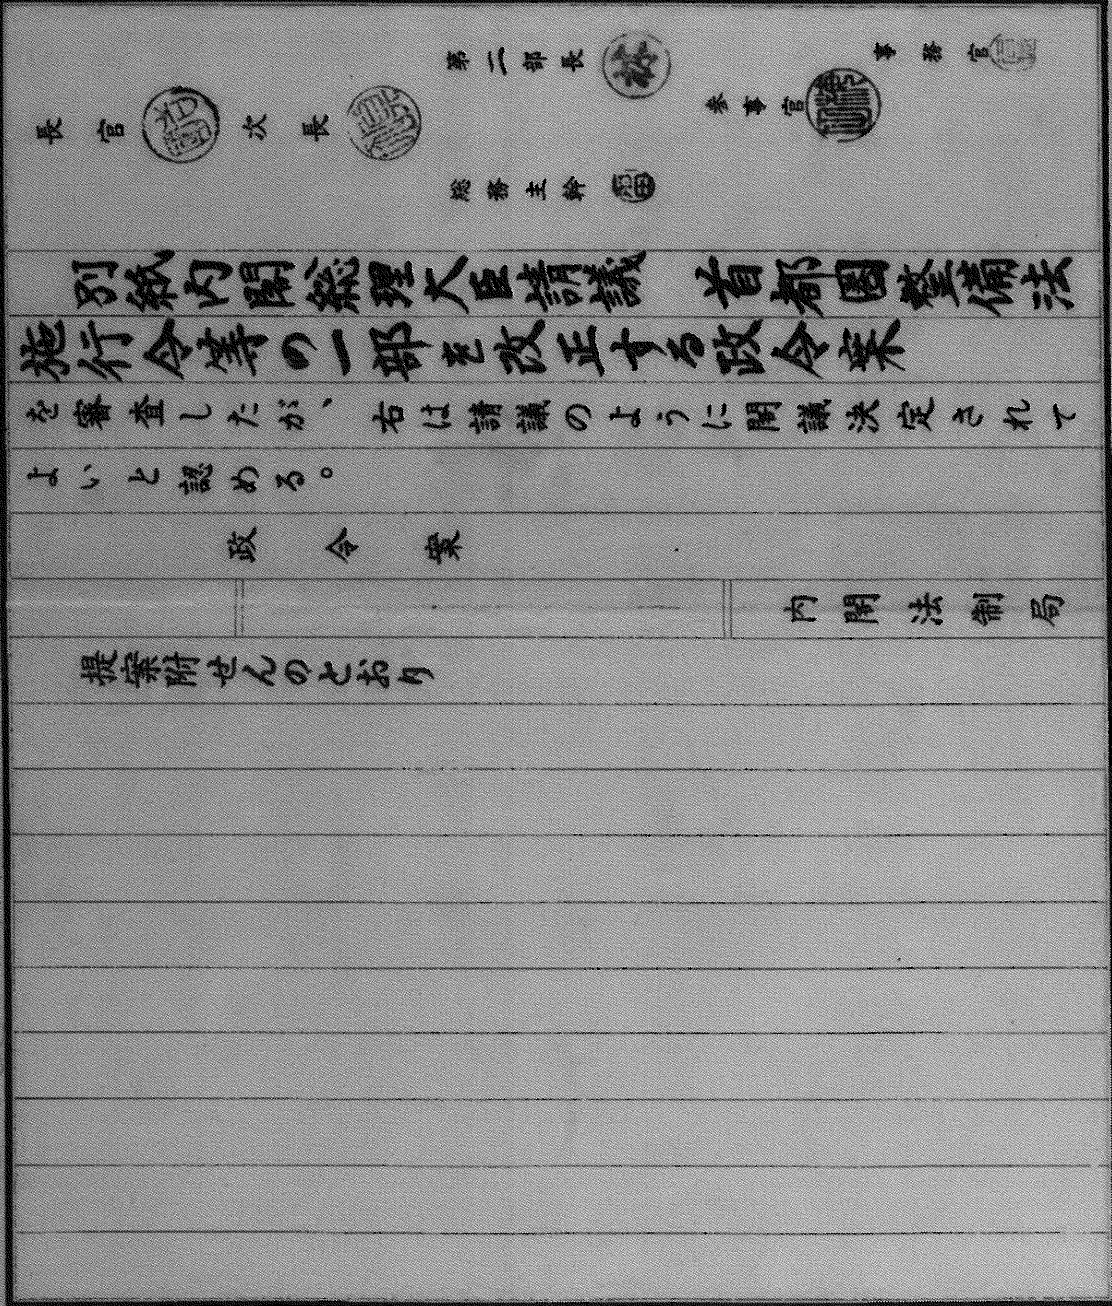 長官
次長
第二部長
総務主幹
参事官
事務官
別紙内閣総理大臣請議 首都圏整備法
施行令等の一部を改正する政令案
を審査したが、右は請議のように閣議決定されて
よいと認める。
政令案
内閣法制局
提案附せんのとおり